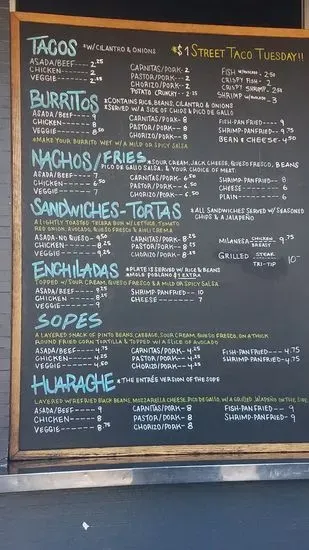 TACOS *W/CILANTRO & ONIONS *$1 STREET TACO TUESDAY!!
ASADA/BEEF---- 2.25 CARNITAS/PORK- 2 FISH W/AVOCADO - 2.50
CHICKEN------- 2 PASTOR/PORK--- 2 CRISPY FISH- 2
VEGGIE-------- 2.25 CHORIZO/PORK-- 2 CRISPY SHRIMP- 2.50
POTATO CRUNCHY - 2.25 SHRIMP W/AVOCADO - 3
BURRITOS *CONTAINS RICE, BEANS, CILANTRO & ONIONS
*SERVED W/A SIDE OF CHIPS & PICO DE GALLO
ASADA/BEEF---- 9 CARNITAS/PORK- 8 FISH-PAN FRIED---- 9
CHICKEN------- 8 PASTOR/PORK--- 8 SHRIMP-PAN FRIED- 9.75
VEGGIE-------- 8.50 CHORIZO/PORK-- 8 BEAN & CHEESE- 4.50
*MAKE YOUR BURRITO WET W/A MILD OR SPICY SALSA
NACHOS/FRIES *SOUR CREAM, JACK CHEESE, QUESO FRESCO, BEANS
PICO DE GALLO SALSA, & YOUR CHOICE OF MEAT.
ASADA/BEEF---- 7 CARNITAS/PORK- 6.50 SHRIMP-PAN FRIED----- 8
CHICKEN------- 6.50 PASTOR/PORK--- 6.50 CHEESE------- 6
VEGGIE-------- 7 CHORIZO/PORK-- 6.50 PLAIN-------- 6
SANDWICHES-TORTAS *ALL SANDWICHES SERVED W/SEASONED
CHIPS & A JALAPEÑO
A LIGHTLY TOASTED TELERA BUN W/LETTUCE, TOMATO
RED ONION, AVOCADO, QUESO FRESCO & AIOLI CREMA
ASADA-NO QUESO- 9.50 CARNITAS/PORK- 8.25 MILANESA-CHICKEN BREAST 9.75
CHICKEN------- 8.25 PASTOR/PORK--- 8.25
VEGGIE-------- 9.25 CHORIZO/PORK-- 8.25 GRILLED STEAK TRI-TIP 10-
ENCHILADAS *PLATE IS SERVED W/RICE & BEANS
*MOLE POBLANO $1 EXTRA
TOPPED W/SOUR CREAM, QUESO FRESCO & A MILD OR SPICY SALSA
ASADA/BEEF---- 9.25 SHRIMP PAN FRIED---- 10
CHICKEN------- 8.25 CHEESE------- 7
VEGGIE-------- 9
SOPES
A LAYERED SNACK OF PINTO BEANS, CABBAGE, SOUR CREAM, QUESO FRESCO, ON A THICK
ROUND FRIED CORN TORTILLA & TOPPED W/A SLICE OF AVOCADO
ASADA/BEEF---- 4.75 CARNITAS/PORK- 4.25 FISH-PAN FRIED---- 4.75
CHICKEN------- 4.25 PASTOR/PORK--- 4.25 SHRIMP-PAN FRIED-- 4.75
VEGGIE-------- 4.50 CHORIZO/PORK-- 4.25
HUARACHE *THE ENTRÉE VERSION OF THE SOPE
LAYERED W/REFRIED BLACK BEANS, MOZZARELLA CHEESE, PICO DE GALLO, W/A GRILLED JALAPEÑO ON THE SIDE
ASADA/BEEF---- 9 CARNITAS/PORK- 8 FISH-PAN FRIED---- 9
CHICKEN------- 8 PASTOR/PORK--- 8 SHRIMP-PAN FRIED-- 9
VEGGIE-------- 8.75 CHORIZO/PORK-- 8